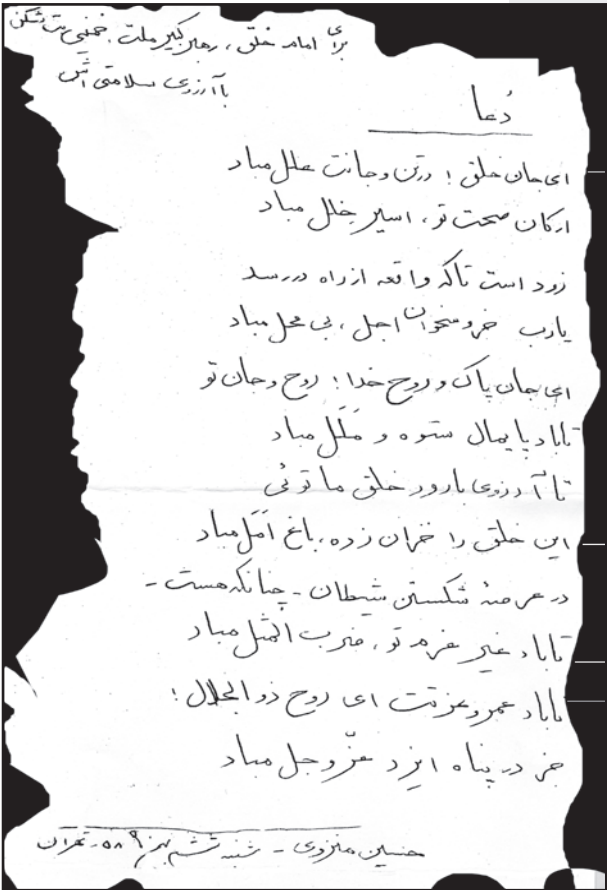 برای امام خلق، رهبر کبیر ملت، خمینی بت شکن
با آرزوی سلامتی اش
دُعا
ای جان خلق! در تن و جانت علل مباد
ارکان صحت تو، اسیر خلل مباد
زود است تا که واقعه از راه در رسد
یارب خروسخوان اجل، بی محل مباد
ای جان پاک و روح خدا! روح و جان تو
تا باد پایمال ستوه و مَلَل مباد
تا آرزوی بارور خلق ما توئی
این خلق را خزان زده، باغ اَمَل مباد
در عرصهٔ شکستن شیطان - چنانکه هست -
تا باد غیر عزم تو، ضرب المثل مباد
تا باد عمر و عزتت ای روح ذوالجلال!
جز در پناه ایزد عزّ و جل مباد
حسین منزوی - شنبه ششم بهمن - تهران